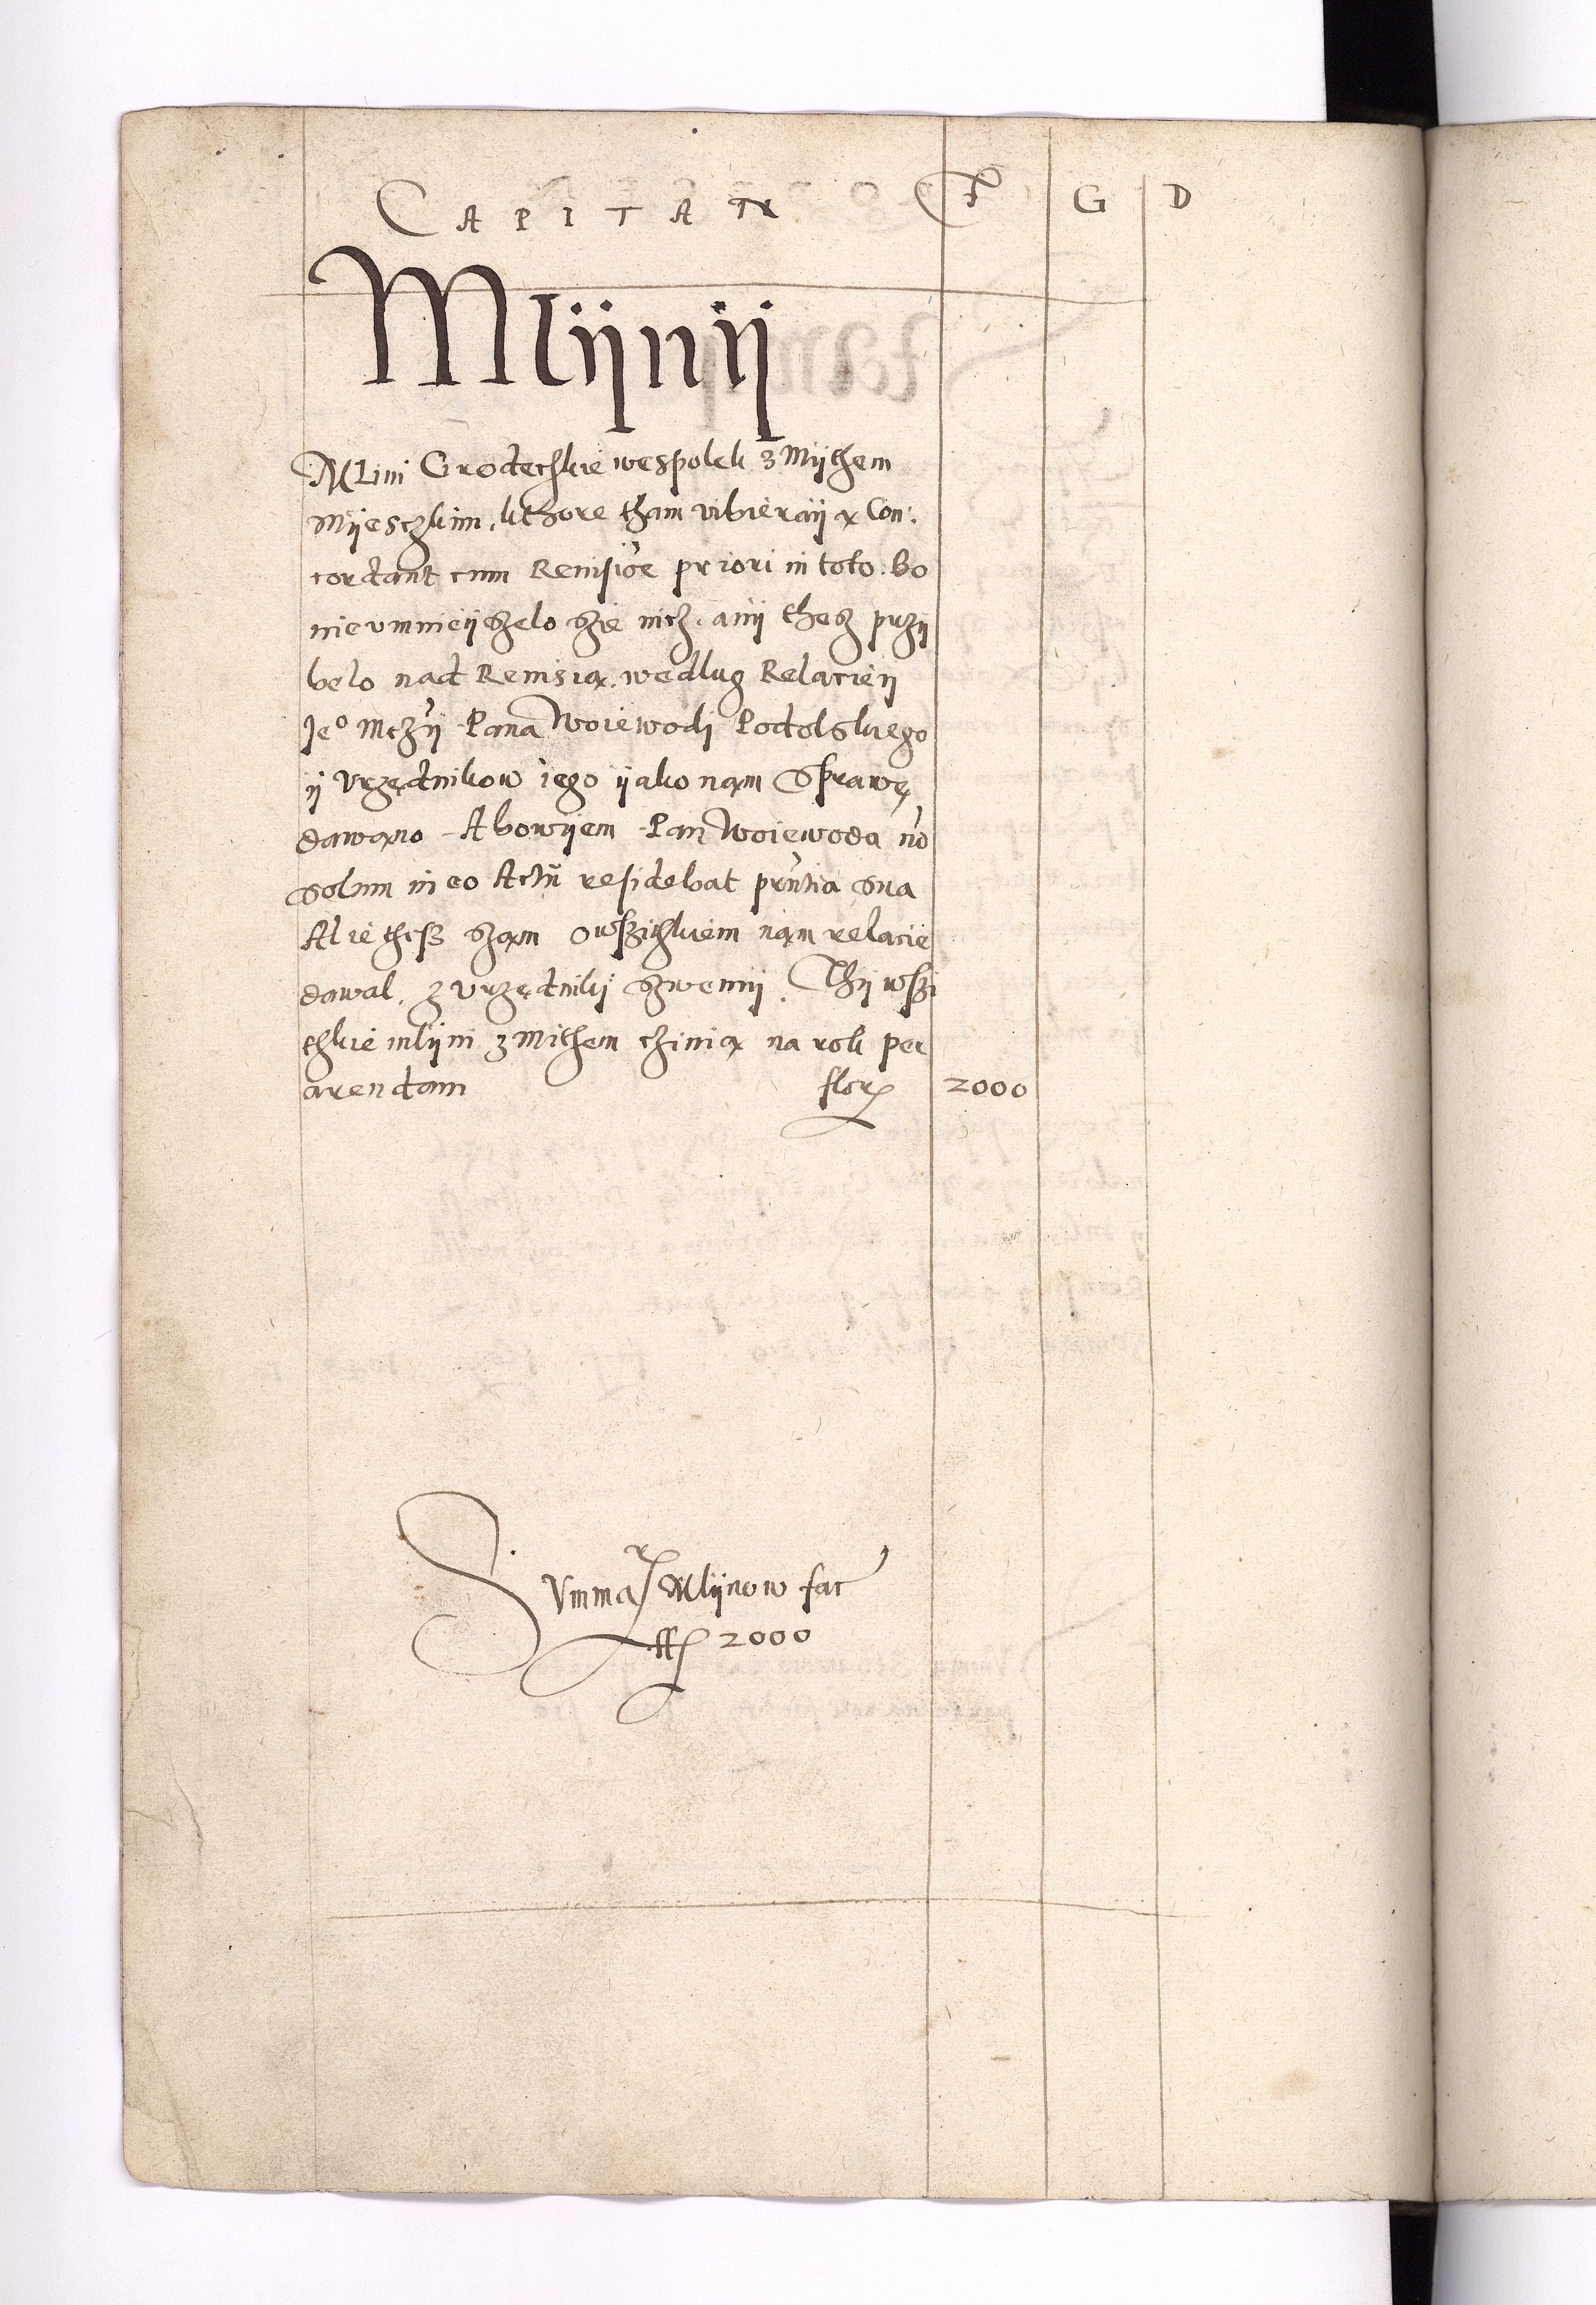 CAPITAN F G D
Mlijnij
Mlini Grodechkie wespolek z Mijthem
Mijesczkim, kthore tham vibieraij ą Con:
cordant cum Revisiōe priori in toto. Bo
nie vmnieijszelo szie nicz, anij thesz przij
belo nad Revisią. wedlug Relacieij
Je° Mczÿ Pana Woiewodi Podolskiego
ij Vrzędnikow iego ijako nąm Sprawę
dawąno - Abowijem Pan Woiewoda nō
solum in eo Actū residebat prñtia sua
Ale thesz sząm owszithkiem nąm relacie
dawal, z vrzędnikij szwemij. Thij wszi
thkie mlijni z Mithem czinią na rok per
arendam flor 2000
Summa Mlijnow fac
ff 2000